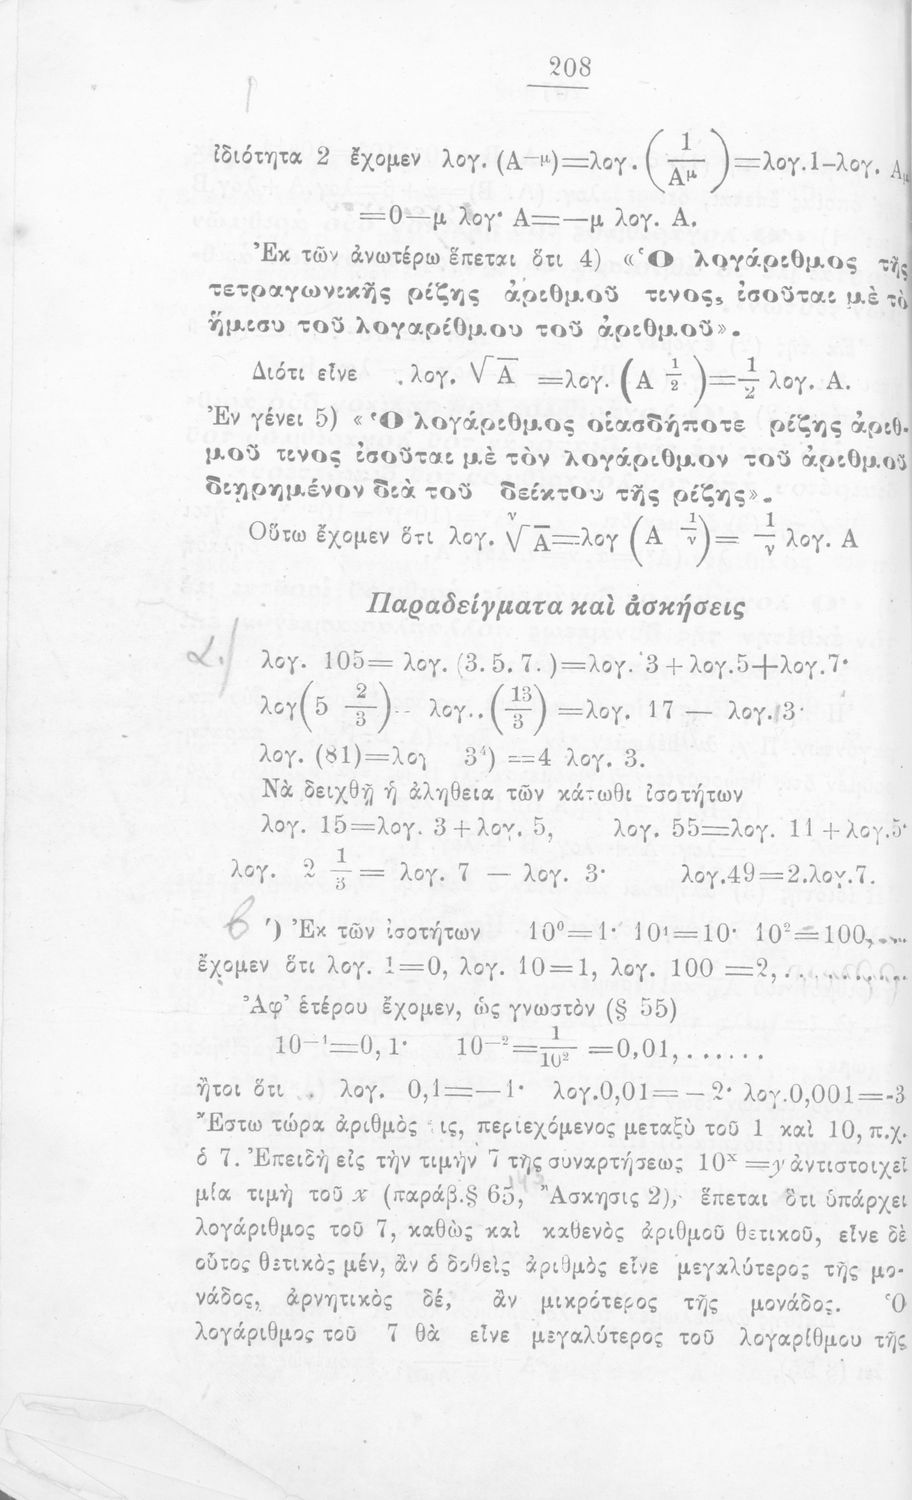 208
ἰδιότητα 2 ἔχομεν λογ. (Α—μ)=λογ. (1/Αμ)=λογ.1–λογ. Αμ
=0—μ λογ· Α=—μ λογ. Α.
Ἐκ τῶν ἀνωτέρω ἕπεται ὅτι 4) «Ὁ λογάριθμος τῆς
τετραγωνικῆς ρίζης ἀριθμοῦ τινος, ἰσοῦται μὲ τὸ
ἥμισυ τοῦ λογαρίθμου τοῦ ἀριθμοῦ».
Διότι εἶνε . λογ. √Α =λογ. (Α 1/2)=1/2 λογ. Α.
Ἐν γένει 5) «Ὁ λογάριθμος οἱασδήποτε ρίζης ἀριθ-
μοῦ τινος ἰσοῦται μὲ τὸν λογάριθμον τοῦ ἀριθμοῦ
διῃρημένον διὰ τοῦ δείκτου τῆς ρίζης».
Οὕτω ἔχομεν ὅτι λογ. ν√Α=λογ (Α 1/ν)= 1/ν λογ. Α
Παραδείγματα καὶ ἀσκήσεις
α./ λογ. 105= λογ. (3. 5. 7. )=λογ. 3+λογ.5+λογ.7·
λογ(5 2/3)-- λογ..(13/3) =λογ. 17 — λογ. 3·
λογ. (81)=λογ 3⁴) ==4 λογ. 3.
Νὰ δειχθῇ ἡ ἀλήθεια τῶν κάτωθι ἰσοτήτων
λογ. 15=λογ. 3+λογ. 5, λογ. 55=λογ. 11+λογ.5·
λογ. 2 1/3 = λογ. 7 — λογ. 3· λογ.49=2.λογ.7.
β ') Ἐκ τῶν ἰσοτήτων 10⁰=1· 10¹=10· 10²=100,...
ἔχομεν ὅτι λογ. 1=0, λογ. 10=1, λογ. 100 =2,. . . . . . . .
Ἀφ' ἑτέρου ἔχομεν, ὡς γνωστὸν (§ 55)
10—¹=0,1· 10—²=1/10² =0,01,......
ἤτοι ὅτι . λογ. 0,1=—1· λογ.0,01=—2· λογ.0,001=-3
Ἔστω τώρα ἀριθμὸς ις, περιεχόμενος μεταξὺ τοῦ 1 καὶ 10, π.χ.
ὁ 7. Ἐπειδὴ εἰς τὴν τιμὴν 7 τῆς συναρτήσεως 10ˣ =y ἀντιστοιχεῖ
μία τιμὴ τοῦ x (παράβ.§ 65, Ἄσκησις 2), ἕπεται ὅτι ὑπάρχει
λογάριθμος τοῦ 7, καθὼς καὶ καθενὸς ἀριθμοῦ θετικοῦ, εἶνε δὲ
οὗτος θετικὸς μέν, ἂν ὁ δοθεὶς ἀριθμὸς εἶνε μεγαλύτερος τῆς μο-
νάδος, ἀρνητικὸς δέ, ἂν μικρότερος τῆς μονάδος. Ὁ
λογάριθμος τοῦ 7 θὰ εἶνε μεγαλύτερος τοῦ λογαρίθμου τῆς